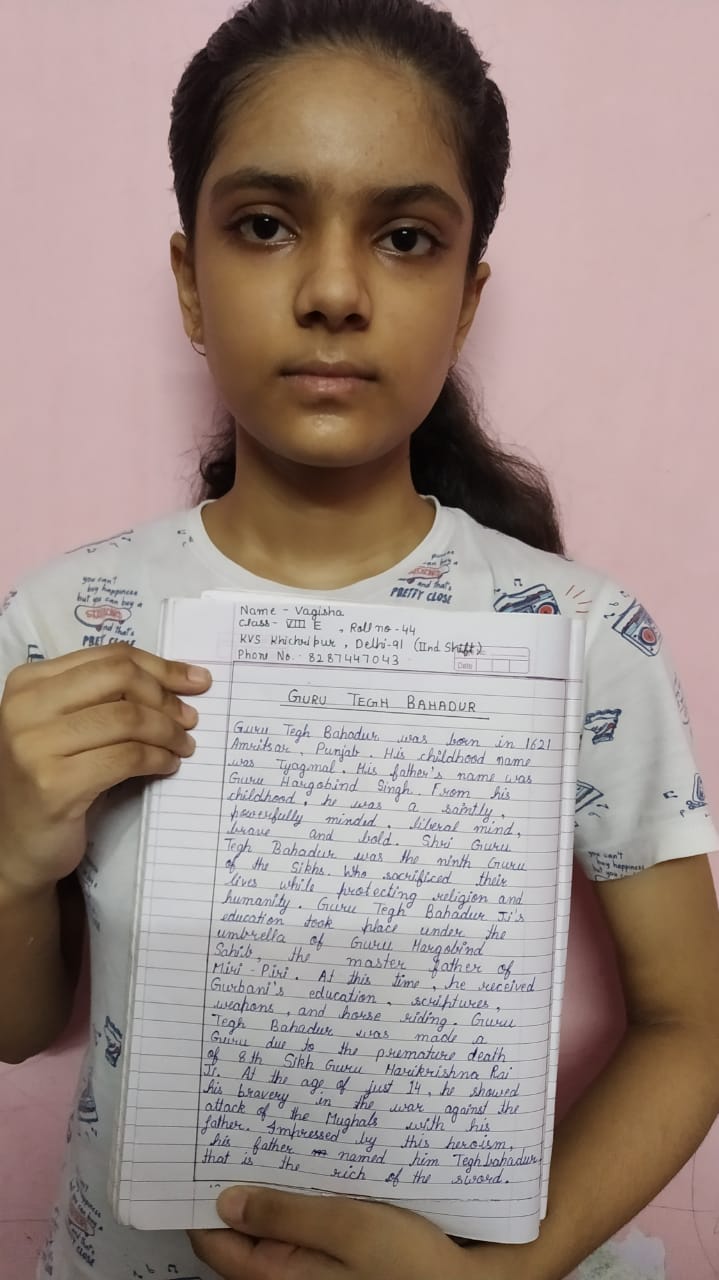 Name - Vagisha
Class - VIII E , Roll no - 44
KVS Khichdipur , Delhi-91 (IInd Shift)
Phone No. - 8287447043
Date
GURU TEGH BAHADUR
Guru Tegh Bahadur was born in 1621
Amritsar, Punjab. His childhood name
was Tyagmal. His father's name was
Guru Hargobind Singh. From his
childhood, he was a saintly,
powerfully minded, liberal mind,
brave and bold. Shri Guru
Tegh Bahadur was the ninth Guru
of the Sikhs. Who sacrificed their
lives while protecting religion and
humanity. Guru Tegh Bahadur Ji's
education took place under the
umbrella of Guru Hargobind
Sahib, the master father of
Miri - Piri. At this time, he received
Gurbani's education, scriptures,
weapons, and horse riding. Guru
Tegh Bahadur was made a
Guru due to the premature death
of 8th Sikh Guru Harikrishna Rai
Ji. At the age of just 14, he showed
his bravery in the war against the
attack of the Mughals with his
father. Impressed by this heroism,
his father named him Teghbahadur
that is the rich of the sword.
you can't
buy happiness
but you can buy a
and that's
PRETTY CLOSE
and that's
PRETTY CLOSE
you can't
buy happiness
but you